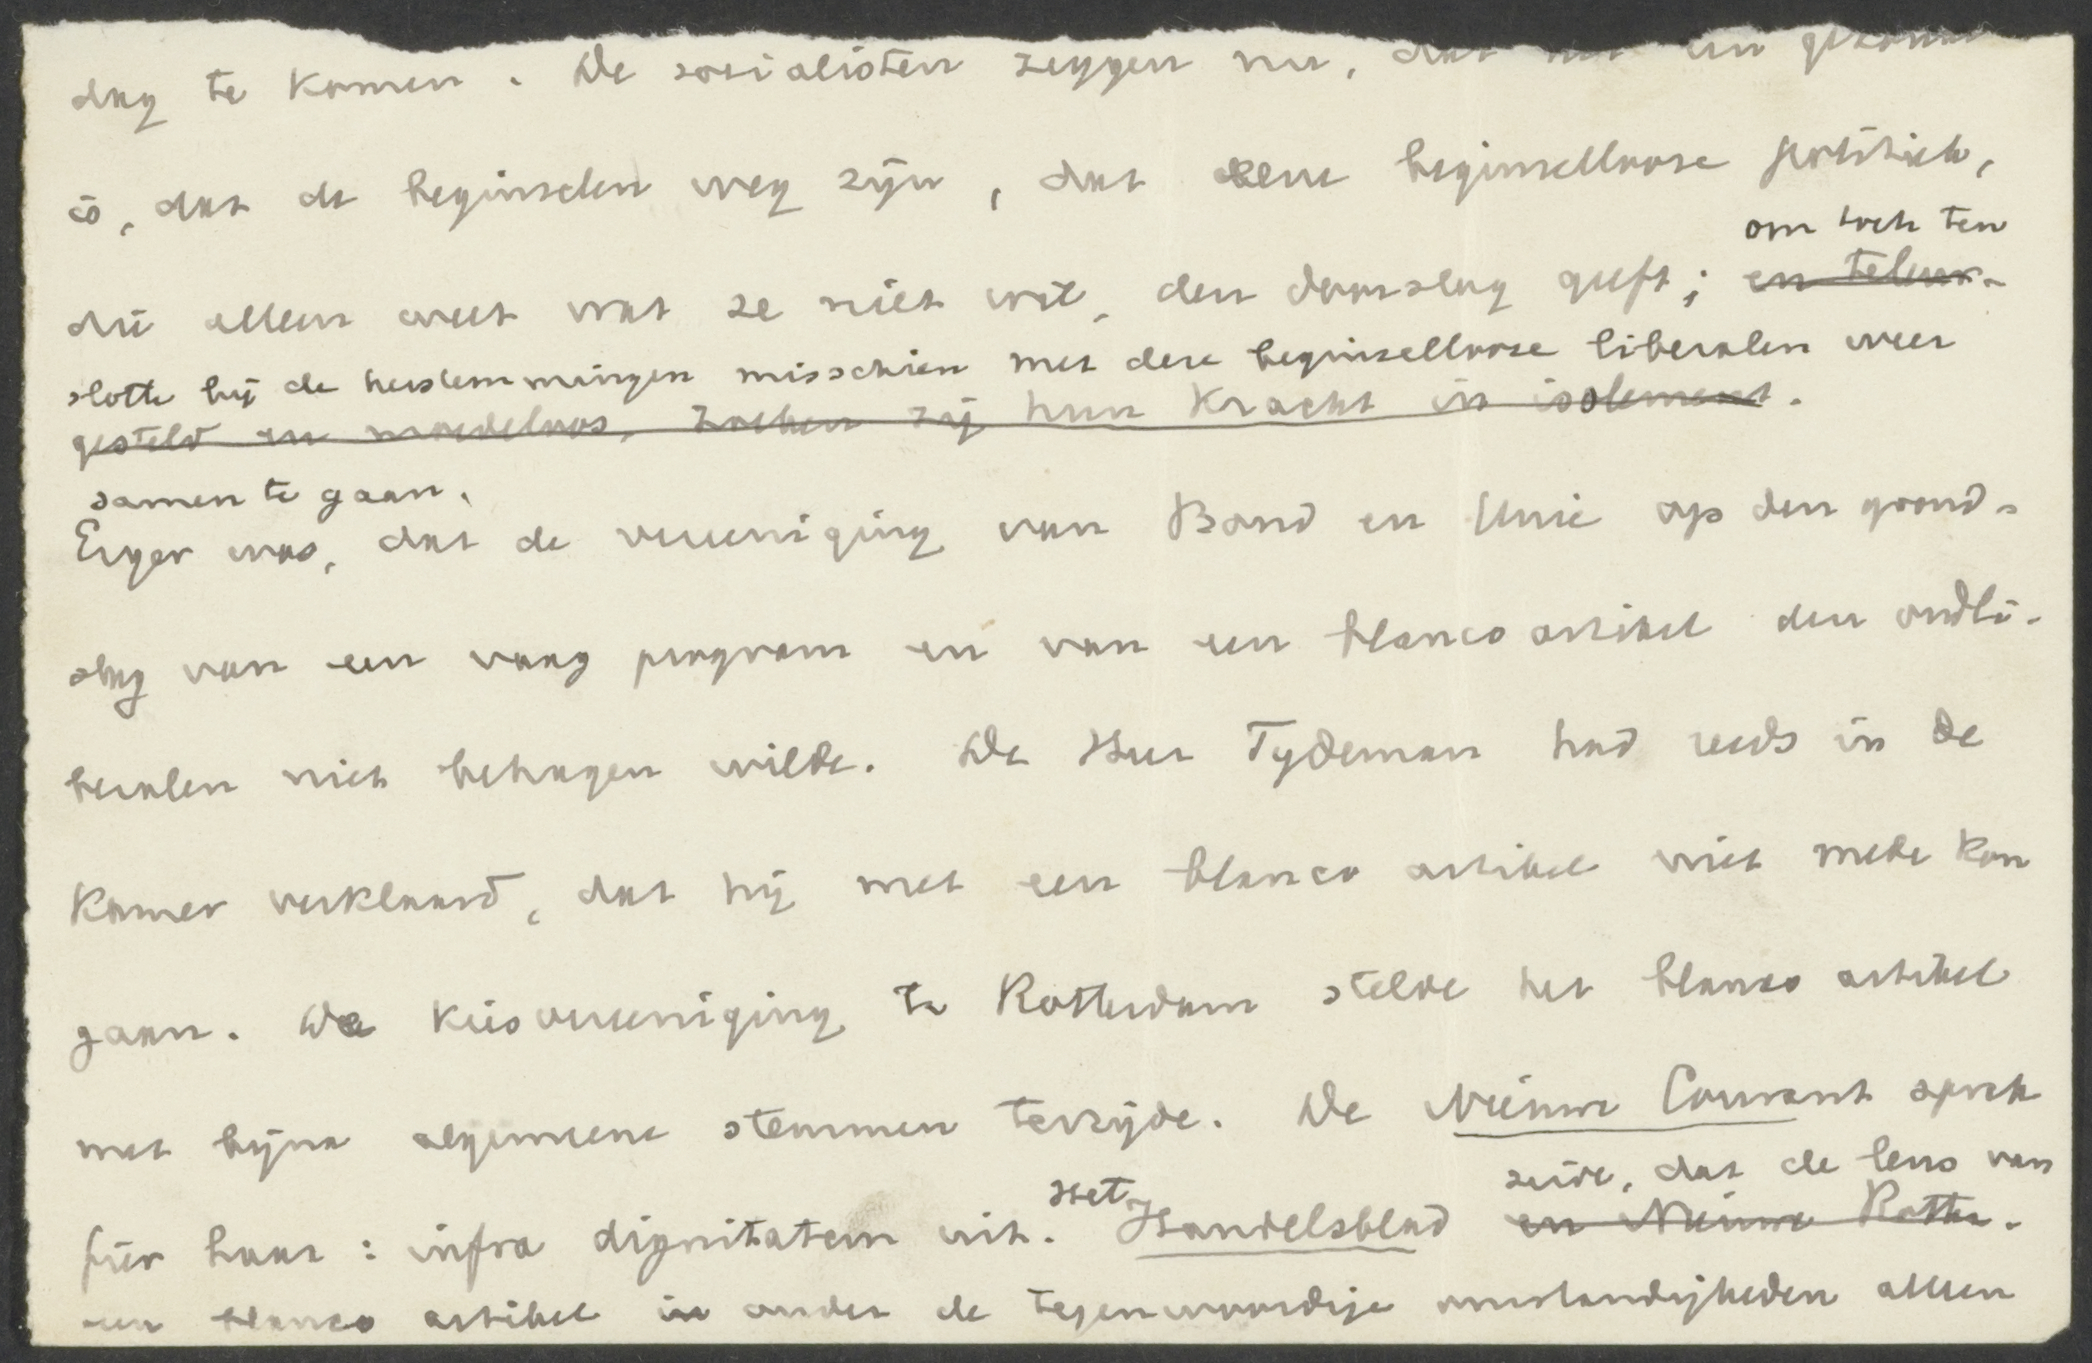 dag te komen. De socialisten zeggen nu, dat het een
is, dat de beginselen weg zijn, dat deze beginsellooze politiek,
om toch ten
die alleen weet wat ze niet wil, den doorslag geeft; en teleur-
slotte bij de herstemmingen misschien met deze beginsellooze liberalen weer
gesteld en moedeloos, zoeken zij hun kracht in isolement.
samen te gaan.
Erger was, dat de vereeniging van Bond en Unie op den grond-
slag van een vaag program en van een blanco artikel den oudli-
beralen niet behagen wilde. De Heer Tydeman had reeds in de
Kamer verklaard, dat hij met een blanco artikel niet mede kon
gaan. De Kiesvereeniging te Rotterdam stelde het blanco artikel
met bijna algemeene stemmen terzijde. De Nieuwe Courant sprak
zeide, dat de leus van
fier haar: infra dignitatem uit. Het Handelsblad en Nieuwe Rotter-
een blanco artikel in onder de tegenwoordige omstandigheden alleen